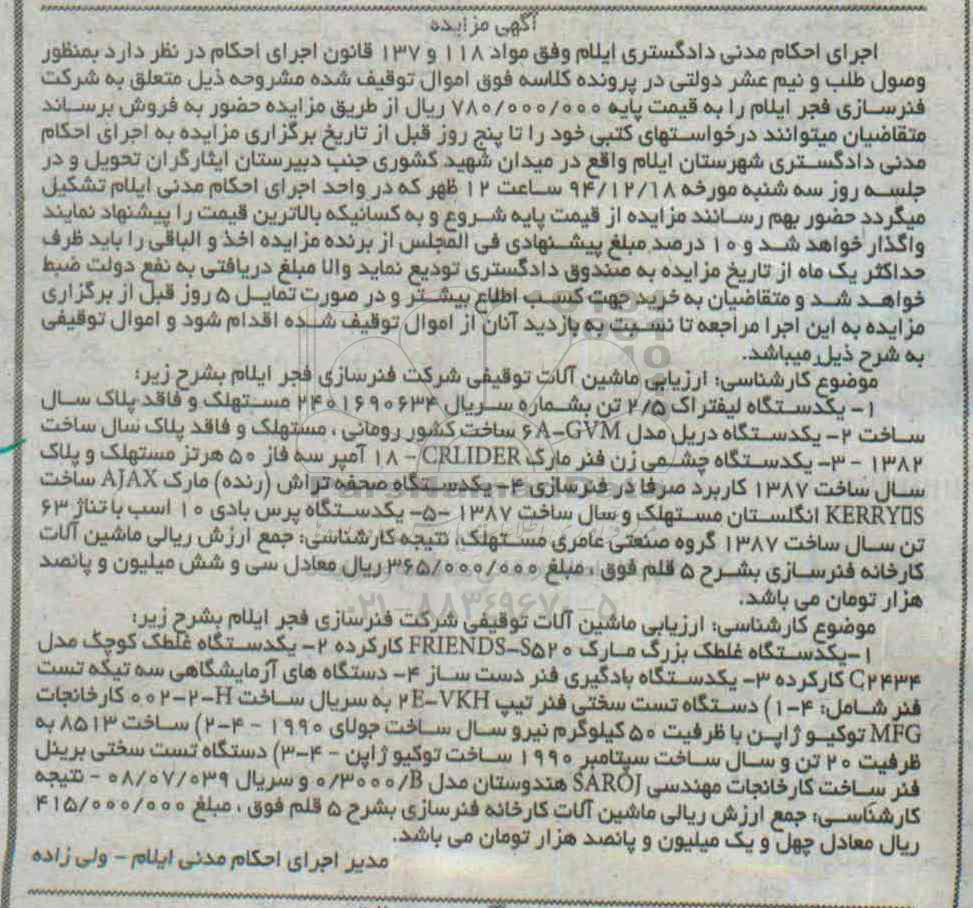 آگهی مزایده
اجرای احکام مدنی دادگستری ایلام وفق مواد ۱۱۸ و ۱۳۷ قانون اجرای احکام در نظر دارد بمنظور
وصول طلب و نیم عشر دولتی در پرونده کلاسه فوق اموال توقیف شده مشروحه ذیل متعلق به شرکت
فنرسازی فجر ایلام را به قیمت پایه ۷۸۰/۰۰۰/۰۰۰ ریال از طریق مزایده حضور به فروش برساند
متقاضیان میتوانند درخواستهای کتبی خود را تا پنج روز قبل از تاریخ برگزاری مزایده به اجرای احکام
مدنی دادگستری شهرستان ایلام واقع در میدان شهید کشوری جنب دبیرستان ایثارگران تحویل و در
جلسه روز سه شنبه مورخه ۹۴/۱۲/۱۸ ساعت ۱۲ ظهر که در واحد اجرای احکام مدنی ایلام تشکیل
میگردد حضور بهم رسانند مزایده از قیمت پایه شروع و به کسانیکه بالاترین قیمت را پیشنهاد نمایند
واگذار خواهد شد و ۱۰ درصد مبلغ پیشنهادی فی المجلس از برنده مزایده اخذ و الباقی را باید ظرف
حداکثر یک ماه از تاریخ مزایده به صندوق دادگستری تودیع نماید والا مبلغ دریافتی به نفع دولت ضبط
خواهد شد و متقاضیان به خرید جهت کسب اطلاع بیشتر و در صورت تمایل ۵ روز قبل از برگزاری
مزایده به این اجرا مراجعه تا نسبت به بازدید آنان از اموال توقیف شده اقدام شود و اموال توقیفی
به شرح ذیل میباشد.
موضوع کارشناسی: ارزیابی ماشین آلات توقیفی شرکت فنرسازی فجر ایلام بشرح زیر:
۱- یکدستگاه لیفتراک ۲/۵ تن بشماره سریال ۲۴۰۱۶۹۰۶۳۴ مستهلک و فاقد پلاک سال
ساخت ۲- یکدستگاه دریل مدل ۶A-GVM ساخت کشور رومانی ، مستهلک و فاقد پلاک سال ساخت
۱۳۸۲ - ۳- یکدستگاه چشمی زن فنر مارک CRLIDER - ۱۸ آمپر سه فاز ۵۰ هرتز مستهلک و پلاک
سال ساخت ۱۳۸۷ کاربرد صرفا در فنرسازی ۴- یکدستگاه صحفه تراش (رنده) مارک AJAX ساخت
KERRY▯S انگلستان مستهلک و سال ساخت ۱۳۸۷ -۵- یکدستگاه پرس بادی ۱۰ اسب با تناژ ۶۳
تن سال ساخت ۱۳۸۷ گروه صنعتی عامری مستهلک، نتیجه کارشناسی: جمع ارزش ریالی ماشین آلات
کارخانه فنرسازی بشرح ۵ قلم فوق ، مبلغ ۳۶۵/۰۰۰/۰۰۰ ریال معادل سی و شش میلیون و پانصد
هزار تومان می باشد.
۰۲۱-۸۸۳۴۹۶۷۰-۵
موضوع کارشناسی: ارزیابی ماشین آلات توقیفی شرکت فنرسازی فجر ایلام بشرح زیر:
۱-یکدستگاه غلطک بزرگ مارک FRIENDS-S۵۲۰ کارکرده ۲- یکدستگاه غلطک کوچک مدل
C۲۴۳۴ کارکرده ۳- یکدستگاه بادگیری فنر دست ساز ۴- دستگاه های آزمایشگاهی سه تیکه تست
فنر شامل: ۴-۱) دستگاه تست سختی فنر تیپ ۲E-VKH به سریال ساخت ۰۰۲-۲-H کارخانجات
MFG توکیو ژاپن با ظرفیت ۵۰ کیلوگرم نیرو سال ساخت جولای ۱۹۹۰ - ۴-۲) ساخت ۸۵۱۳ به
ظرفیت ۲۰ تن و سال ساخت سپتامبر ۱۹۹۰ ساخت توکیو ژاپن - ۴-۳) دستگاه تست سختی برینل
فنر ساخت کارخانجات مهندسی SAROJ هندوستان مدل ۰/۳۰۰۰/B و سریال ۰۸/۰۷/۰۳۹ - نتیجه
کارشناسی: جمع ارزش ریالی ماشین آلات کارخانه فنرسازی بشرح ۵ قلم فوق ، مبلغ ۴۱۵/۰۰۰/۰۰۰
ریال معادل چهل و یک میلیون و پانصد هزار تومان می باشد.
مدیر اجرای احکام مدنی ایلام - ولی زاده